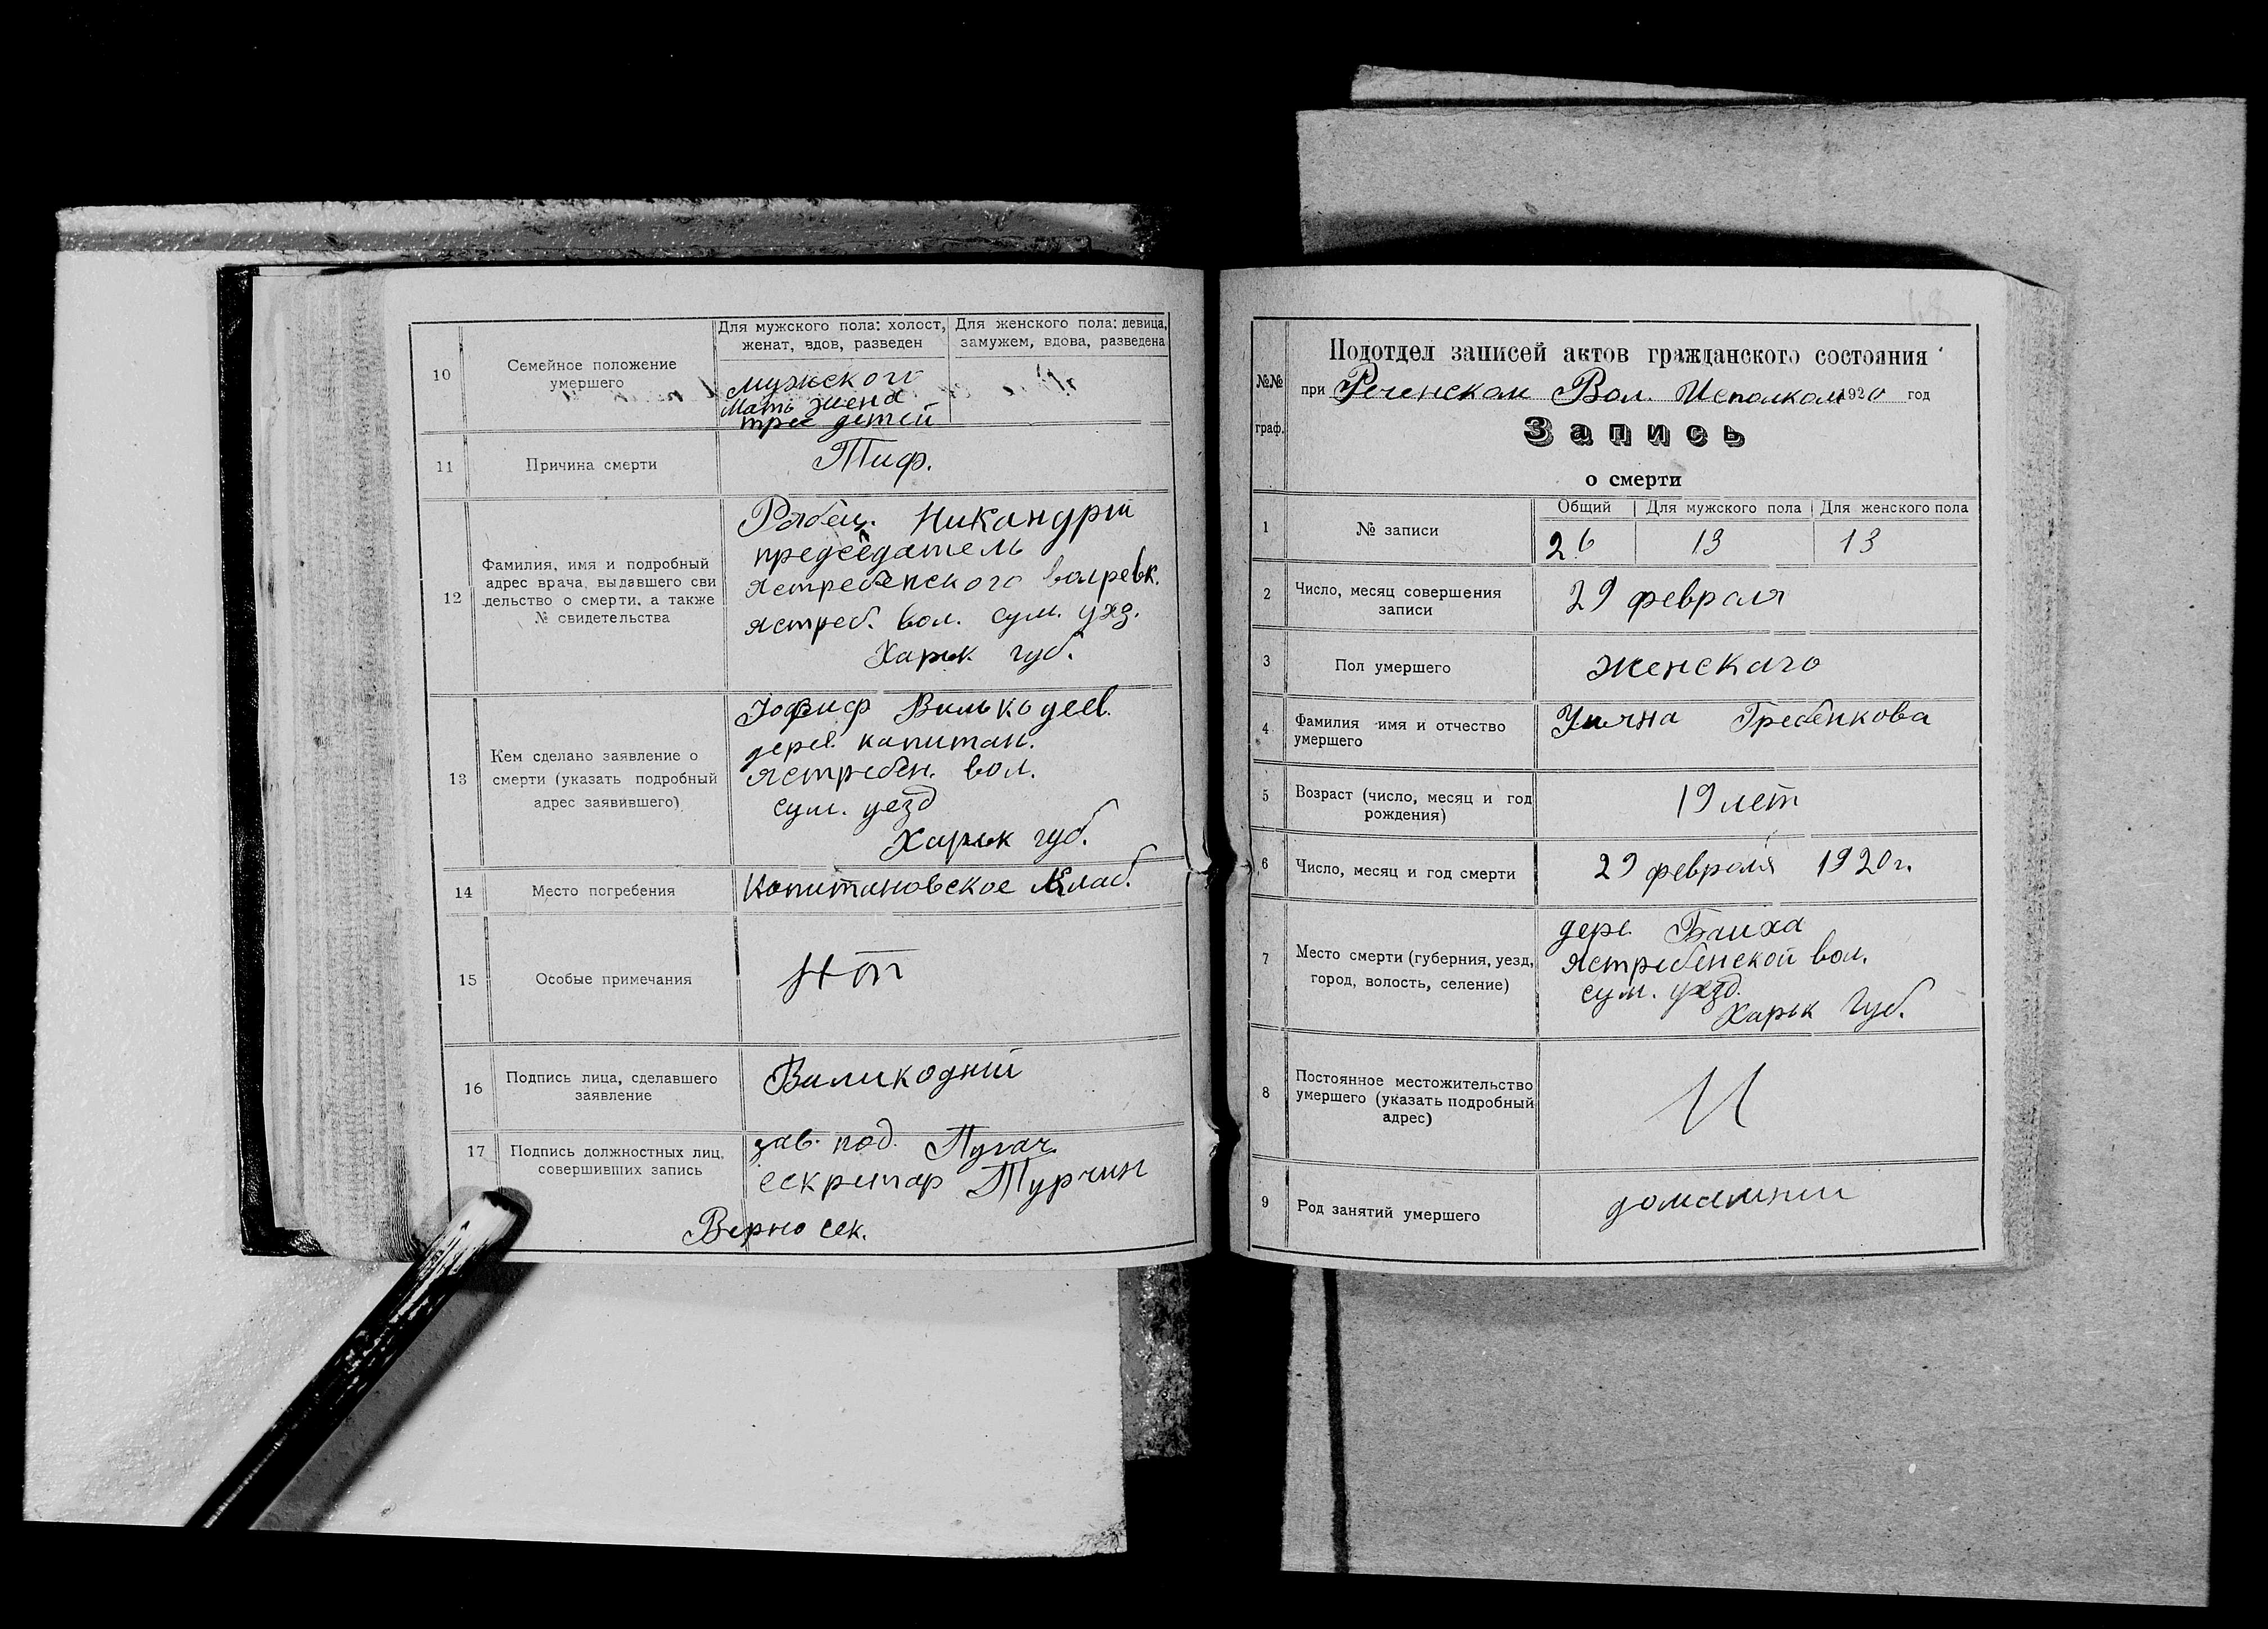 10
Семейное положение
умершего
Для мужского пола: холост,
женат, вдов, разведен
Для женского пола: девица,
замужем, вдова, разведена
мужского
мать жена
трое детей
11
Причина смерти
Тиф.
12
Фамилия, имя и подробный
адрес врача, выдавшего сви
дельство о смерти, а также
№ свидетельства
Рябец. Никандрий
председатель
Ястребенского волревк.
ястреб. вол. сум. уезд.
Харьк. губ.
13
Кем сделано заявление о
смерти (указать подробный
адрес заявившего)
дерев. капитан.
Ястребен. вол.
сум. уезд
Харьк губ.
14
Место погребения
Капитановское Клад.
15
Особые примечания
16
Подпись лица, сделавшего
заявление
Виликодний
17
Подпись должностных лиц,
совершивших запись
зав. под. Пугач
секритар Турчин
Верно сек.
68
№№
граф.
Подотдел записей актов гражданского состояния
при Реченском Вол. Исполком 1920 год
Запись
о смерти
1
№ записи
Общий
Для мужского пола
Для женского пола
26
13
13
2
Число, месяц совершения
записи
29 февраля
3
Пол умершего
женскаго
4
Фамилия имя и отчество
умершего
Гребенкова
5
Возраст (число, месяц и год
рождения)
19 лет
6
Число, месяц и год смерти
29 февраля 1920 г.
7
Место смерти (губерния, уезд,
город, волость, селение)
дере. Баиха
Ястребенской вол.
сум. уезд.
Харьк Губ.
8
Постоянное местожительство
умершего (указать подробный
адрес)
9
Род занятий умершего
домашнии